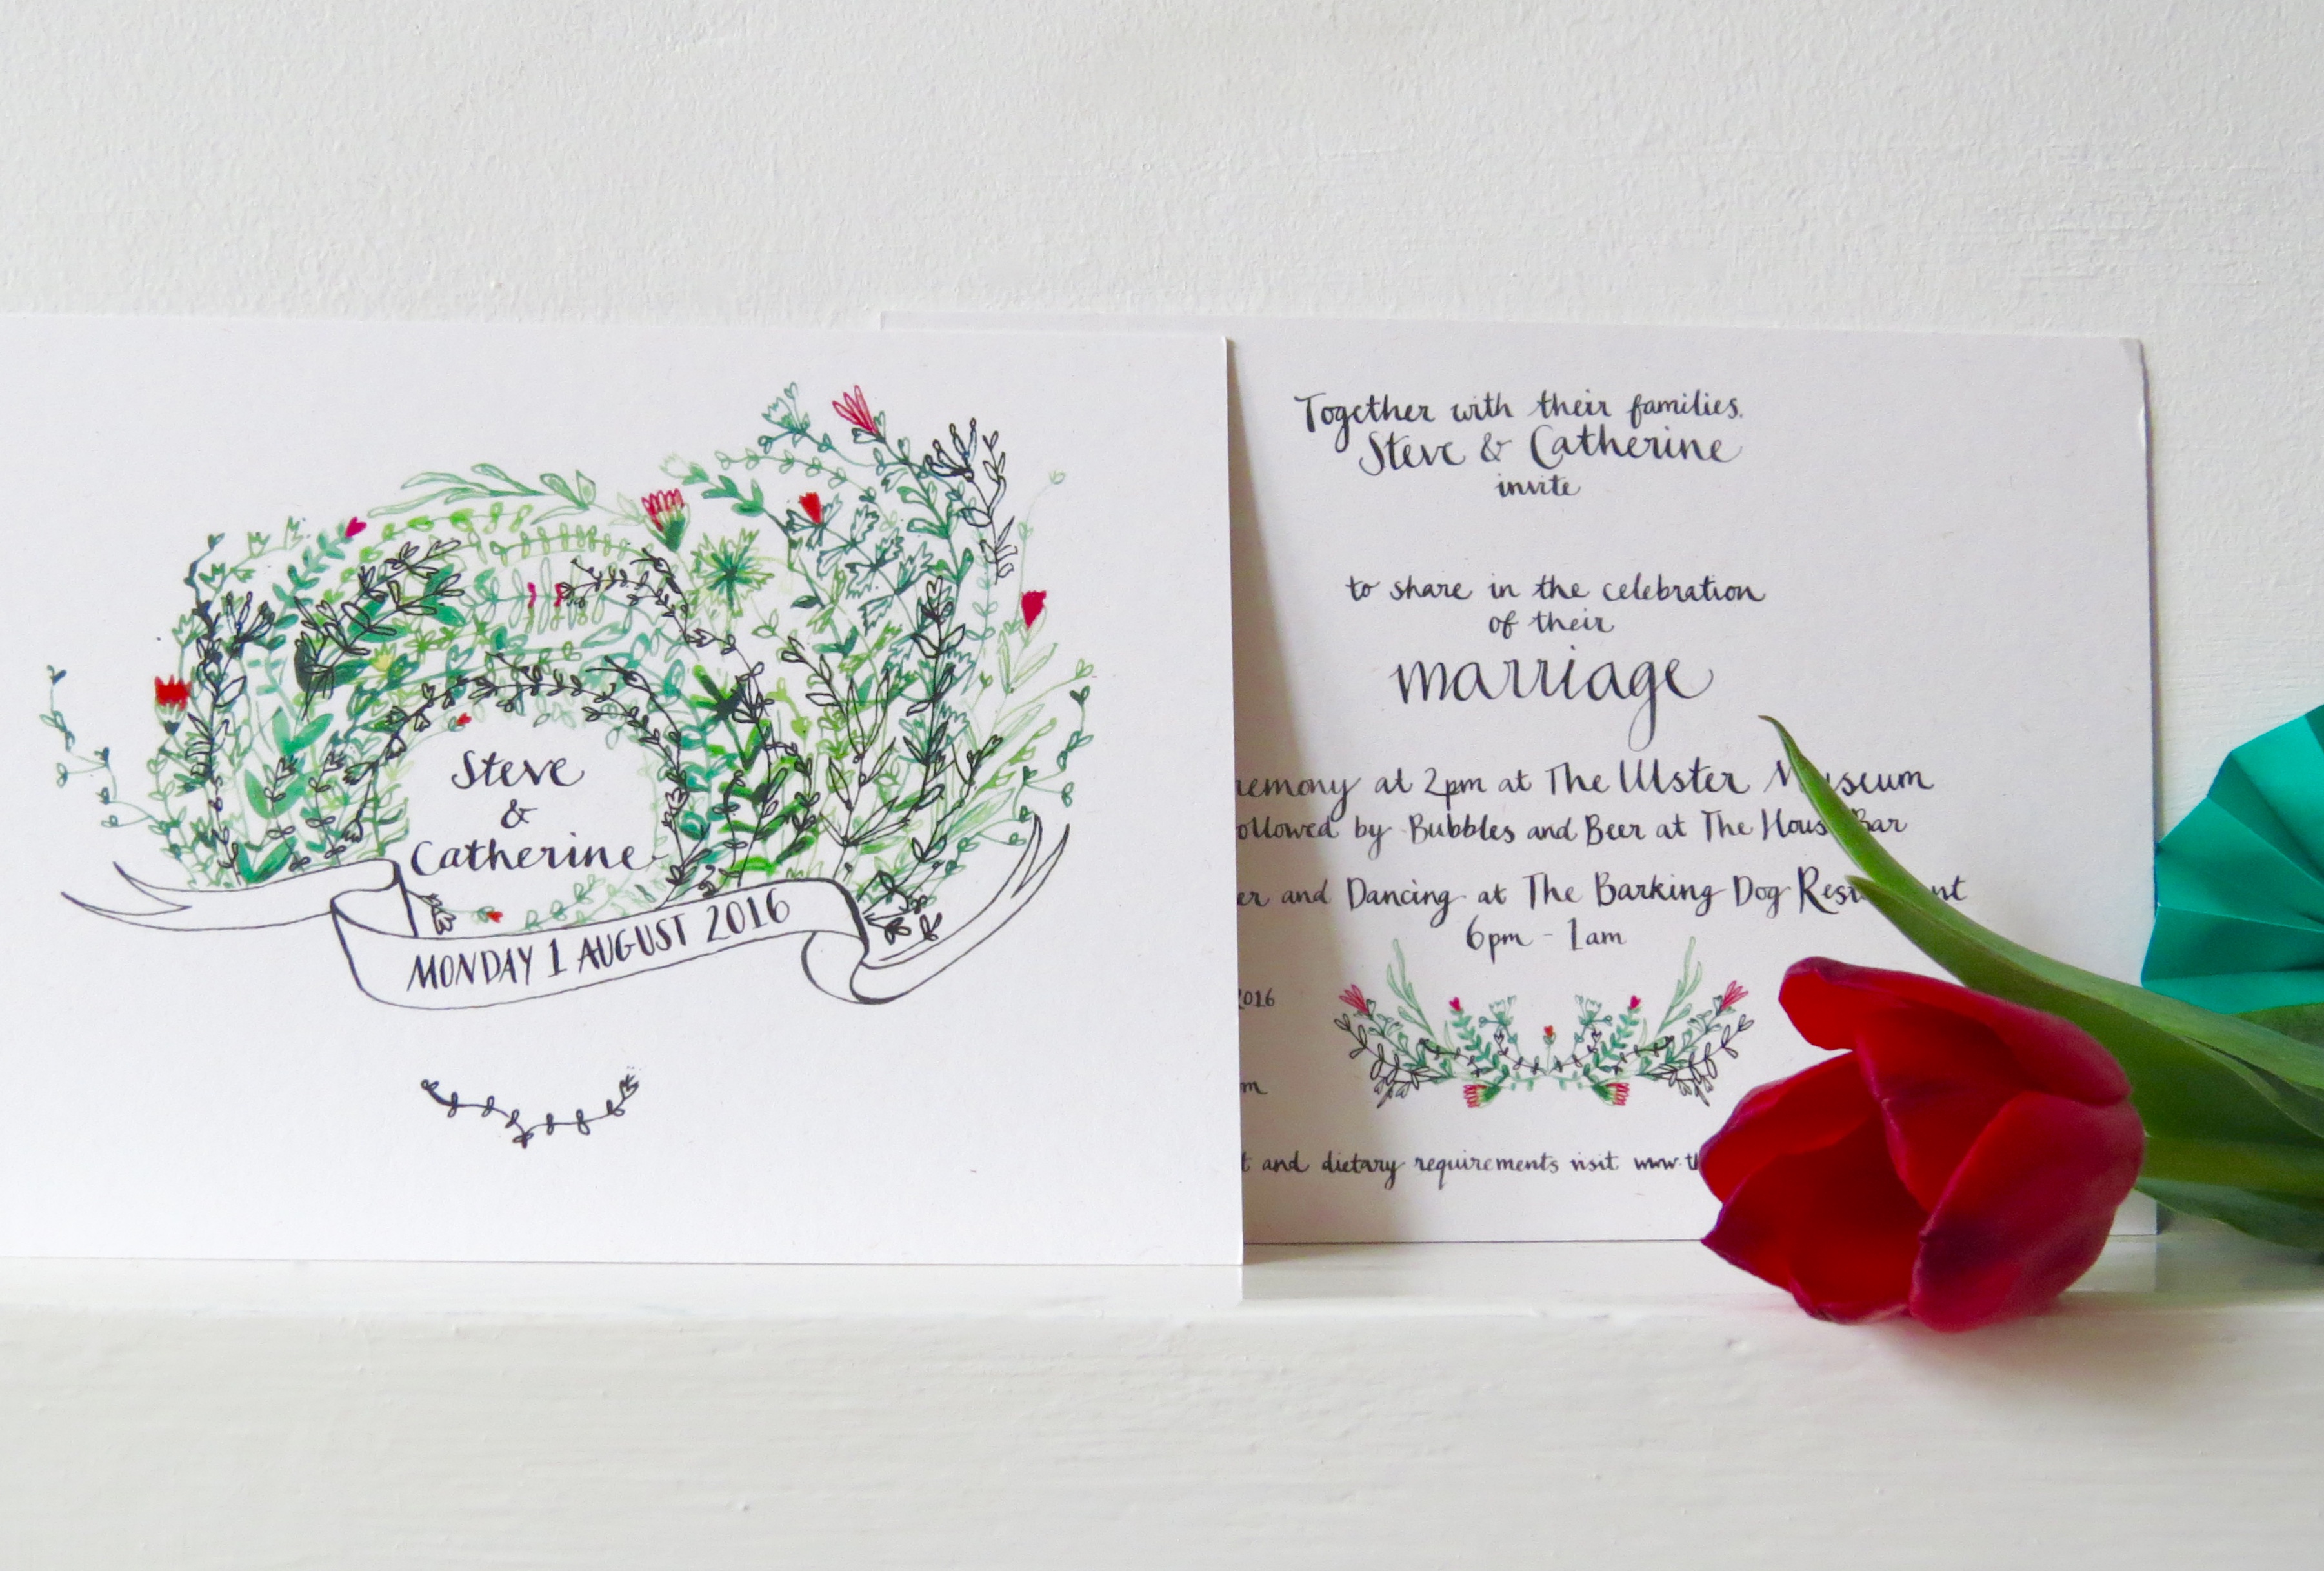 Steve
&
Catherine
MONDAY 1 AUGUST 2016
Together with their families,
Steve & Catherine
invite
to share in the celebration
of their
marriage
at 2pm at The Ulster Museum
by Bubbles and Beer at The House Bar
and Dancing at The Barking Dog
6pm - 1am
2016
and dietary requirements visit